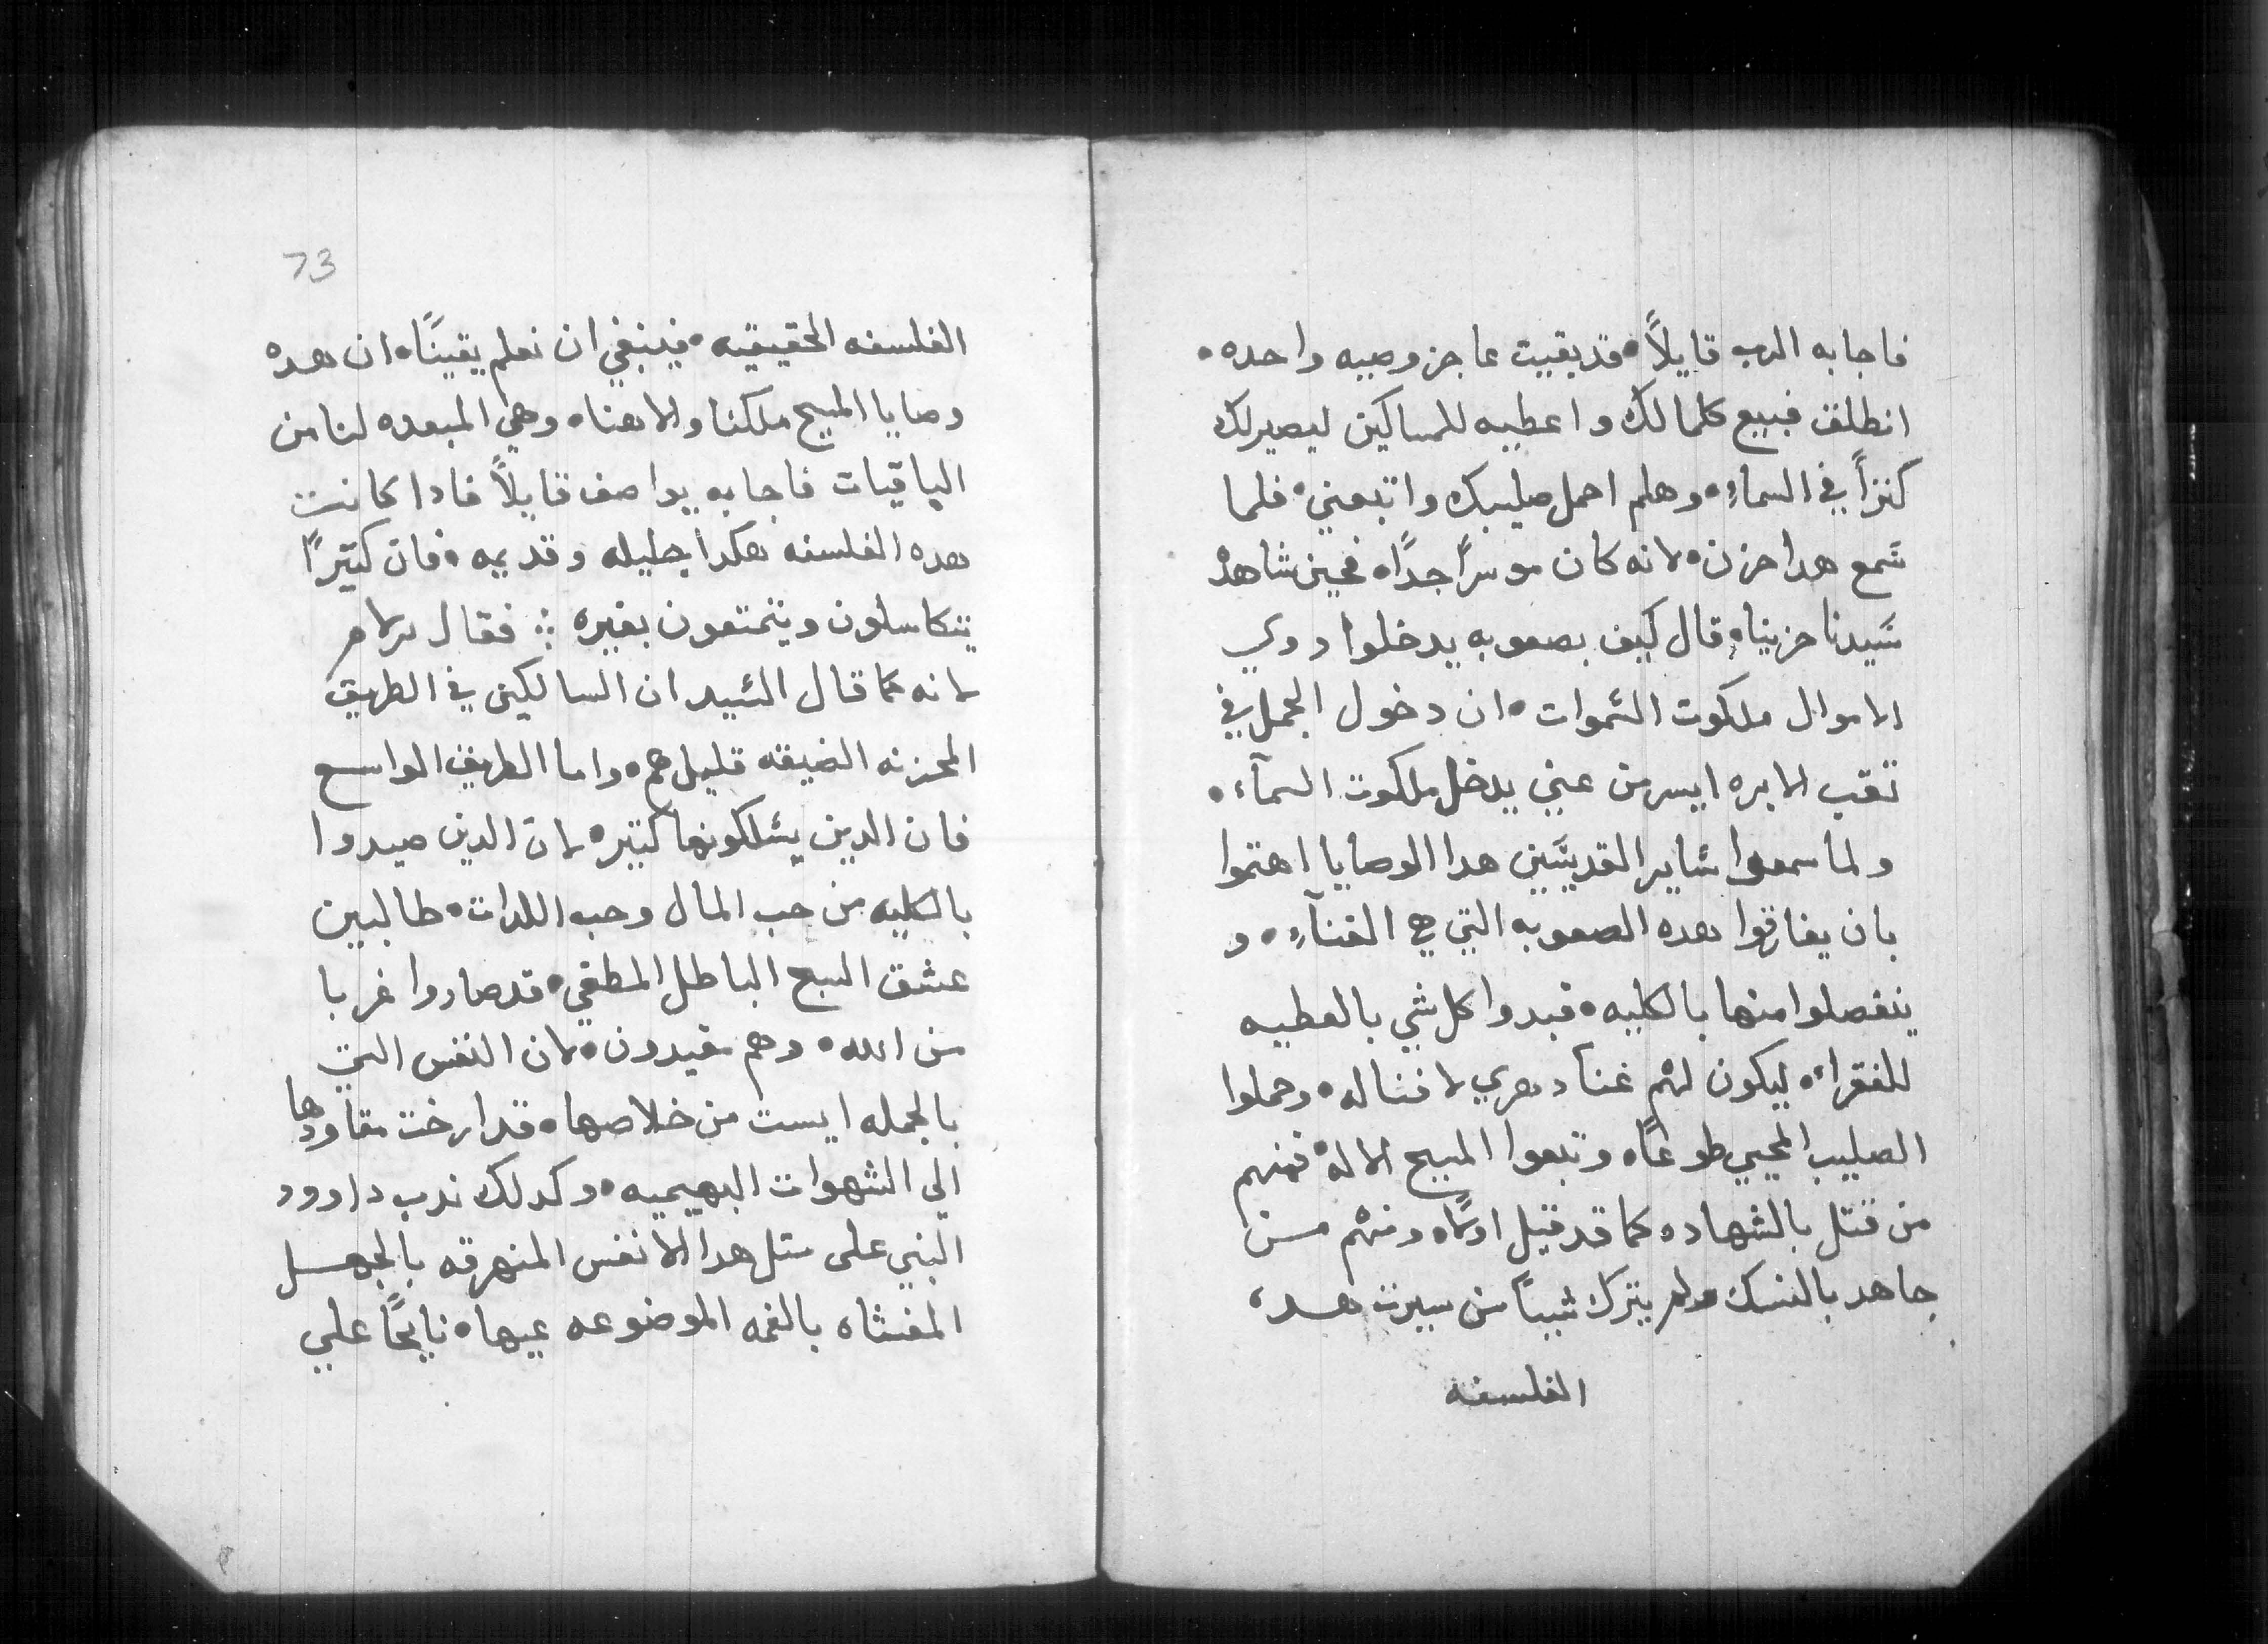 فاجابه الرب قايلاً • قد بقيت عاجز وصيه واحده •
انطلق فبيع كلما لك واعطيه للمساكين ليصير لك
كنزاً في السماءِ • وهلم احمل صليبك واتبعني • فلما
سَمع هدا حزن • لانه كان موسراً جداً • فحين شاهدْ
سَيدنا حزينا • قال كيف بصعوبه يدخلوا دوي
الاموال ملكوت السَموات • ان دخول الجمل في
تقب الابره ايسر من غني يدخل ملكوت السمآء •
ولما سمعوا سَاير القديسَين هدا الوصايا اهتموا
بان يفارقوا هده الصعوبه التي هي الغنآءِ • و
ينفصلوا منها بالكليه • فبدوا كل شي بالعطيه
للفقراء • ليكون لهم غنا دهري لا فنا له • وحملوا
الصليب المحيي طوعًا • وتبعوا المسيح الاله • فمنهم
من قتل بالشهاده كما قد قيل اولاً • ومنهم مــن
جاهد بالنسك ولم يترك شيياً من سيرت هــده
الفلسفه
73
الفلسفه الحقيقيه • فينبغي ان نعلم يقينًا • ان هده
وصايا المسيح ملكنا والاهنا • وهي المبعده لنا من
الباقيات فاجابه يواصف قايلاً فادا كانت
هده الفلسفه هكدا جليله وقديمه • فان كتيرًا
يتكاسلون ويتمتعون بغيره ∴ فقال برلام
لانه كما قال السَيد ان السالكين في الطريق
المحزنه الضيقه قليل هم • واما الطريق الواسع
فان الدين يسَلكونها كتير • لان الدين صيدوا
بالكليه من حب المال وحب اللدات • طالبين
عشق السبح الباطل المطغي • قد صاروا غربا
من الله • وهم مقيدون • لان النفس التي
بالجمله ايست من خلاصها • قد ارخت مقاودها
الي الشهوات البهيميه • وكدلك ندب داوود
النبي على متل هدا الانفس المنهرقه بالجهــل
المغشاه بالغمه الموضوعه عيها • نايحًا علي